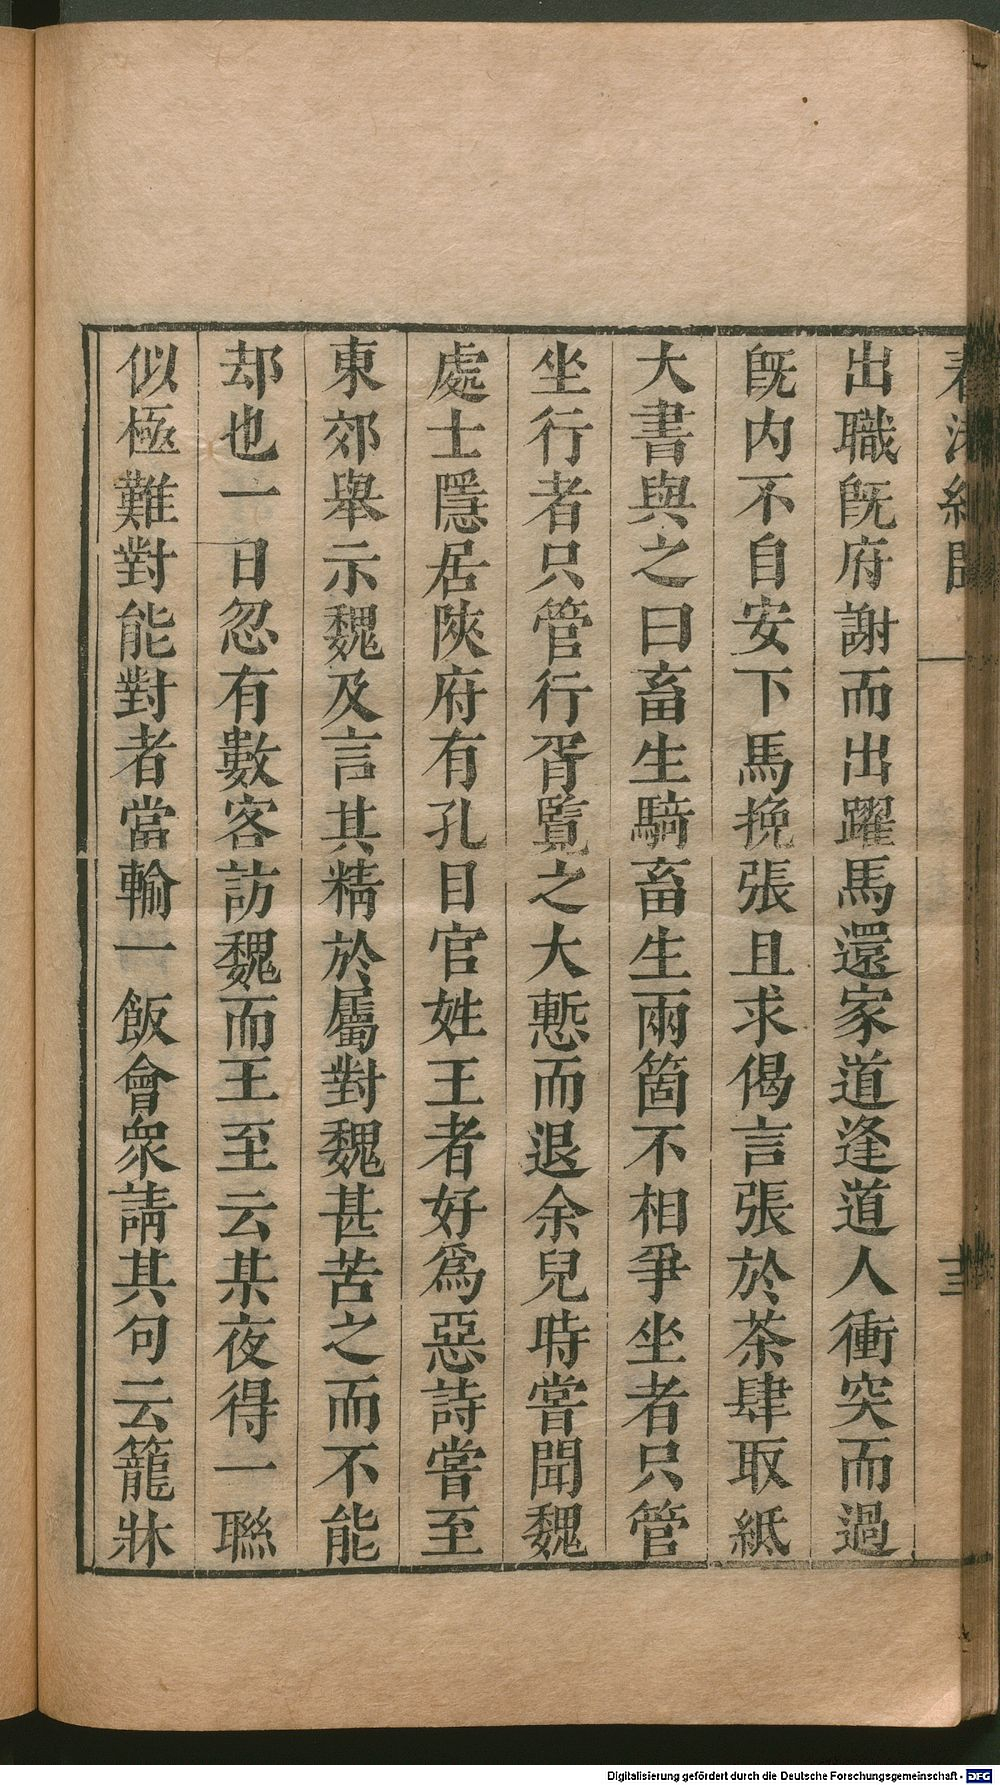 出職旣府謝而出躍馬還家道逢道人衝突而過
旣內不自安下馬挽張且求偈言張於茶肆取紙
大書與之曰畜生騎畜生兩箇不相爭坐者只管
坐行者只管行胥覽之大慙而退余兒時嘗聞魏
處士隱居陝府有孔目官姓王者好爲惡詩嘗至
東郊舉示魏及言其精於屬對魏甚苦之而不能
却也一日忽有數客訪魏而王至云某夜得一聮
似極難對能對者當輸一飯會衆請其句云籠牀
Digitalisierung gefördert durch die Deutsche Forschungsgemeinschaft - DFG